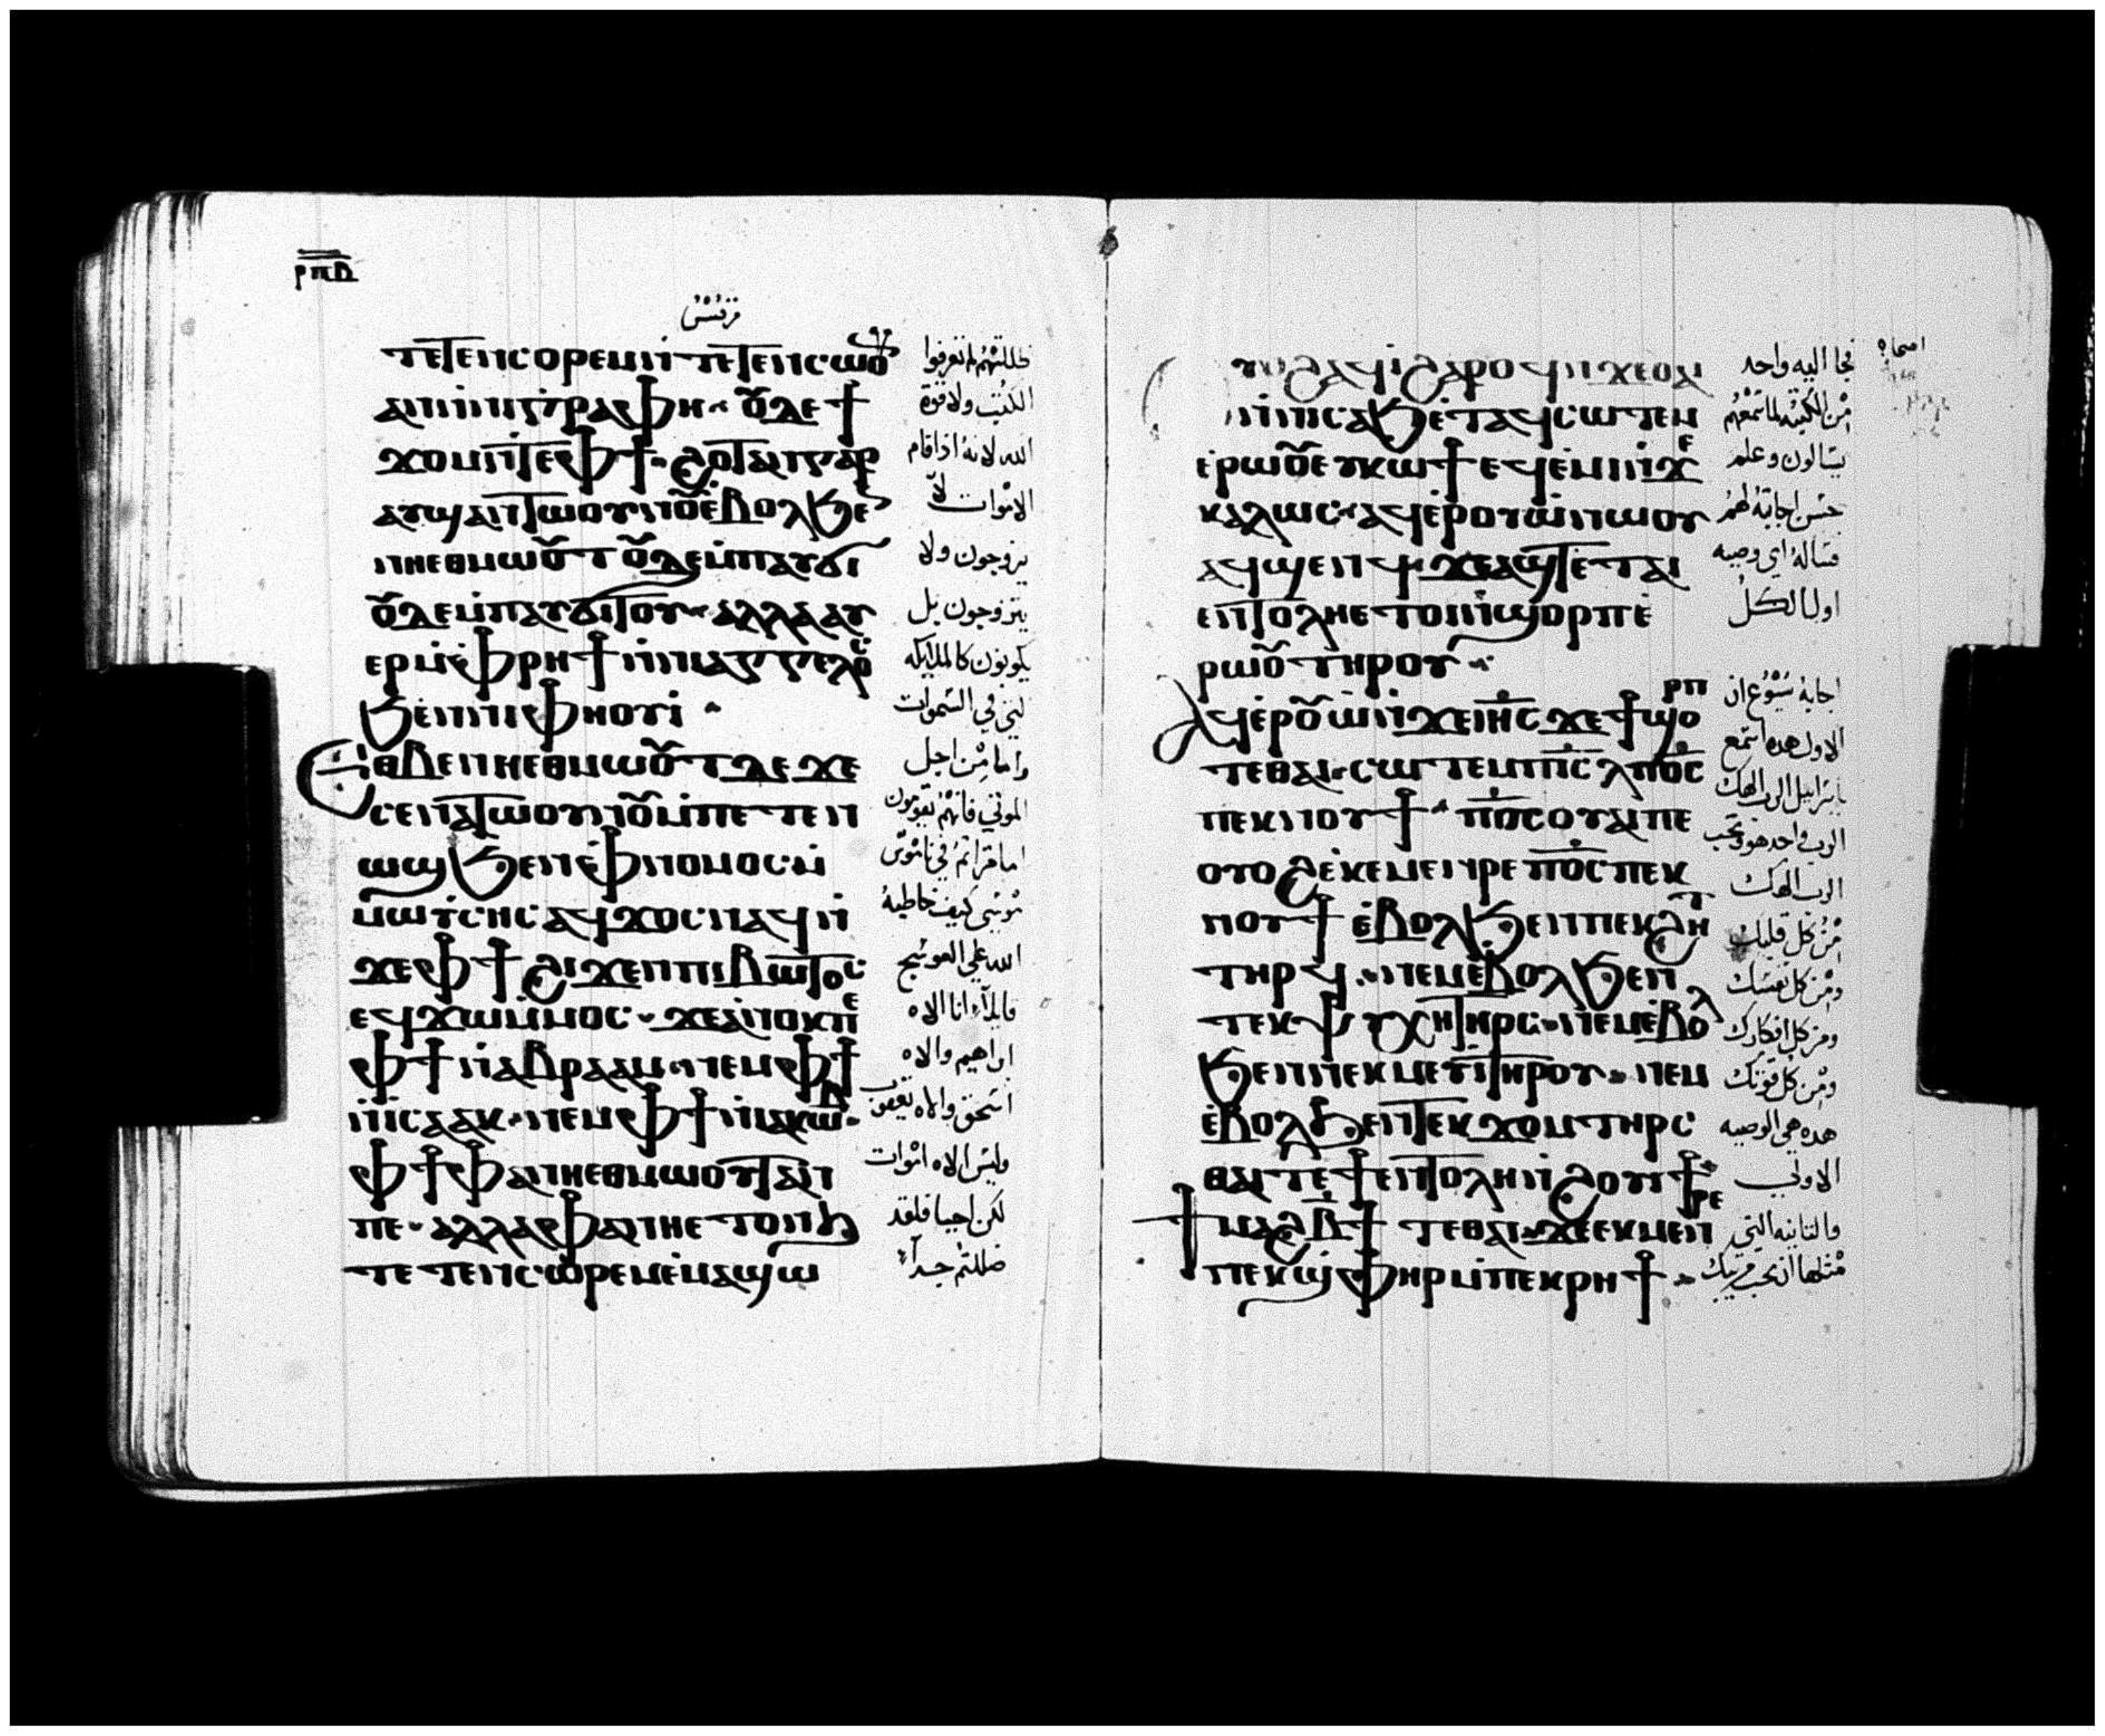 ⲣⲡⲃ
مرقس
ⲧⲉⲧⲉⲛⲥⲟⲣⲉⲙ ⲛ̀ⲧⲉⲧⲉⲛⲥⲱⲟⲩ
ⲁⲛ ⲛ̀ⲛⲓⲅⲣⲁⲫⲏ ⲟⲩⲇⲉ ϯ
ϫⲟⲙ ⲛ̀ⲧⲉ ⲫϯ ϩⲟⲧⲁⲛ ⲅⲁⲣ
ⲁⲩϣⲁⲛⲧⲱⲟⲩⲛⲟⲩ ⲉ̀ⲃⲟⲗϧⲉⲛ
ⲛⲏⲉⲑⲙⲱⲟⲩⲧ ⲟⲩⲇⲉ ⲙ̀ⲡⲁⲩϭⲓ
ⲟⲩⲇⲉ ⲙ̀ⲡⲁⲩϭⲓⲧⲟⲩ ⲁⲗⲗⲁ ⲁⲩ
ⲉⲣⲙ̀ⲫⲣⲏϯ ⲛ̀ⲛⲓⲁⲅⲅⲉⲗⲟⲥ
ϧⲉⲛ ⲛⲓⲫⲏⲟⲩⲓ̀
ⲉⲑⲃⲉ ⲛⲏⲉⲑⲙⲱⲟⲩⲧ ⲇⲉ ϫⲉ
ⲥⲉⲛⲁⲧⲱⲟⲩⲛⲟⲩ ⲙ̀ⲡⲉⲧⲉⲛ
ⲱϣ ϧⲉⲛ ⲫ̀ⲛⲟⲙⲟⲥ ⲙ̀
ⲙⲱⲩ̀ⲥⲏⲥ ⲁϥϫⲟⲥ ⲛⲁϥ ⲛ̀
ϫⲉ ⲫϯ ϩⲓϫⲉⲛ ⲡⲓⲃⲁⲧⲟⲥ
ⲉϥϫⲱ ⲙ̀ⲙⲟⲥ ϫⲉ ⲁ̀ⲛⲟⲕ ⲡⲉ
ⲫϯ ⲛ̀ⲁⲃⲣⲁⲁⲙ ⲛⲉⲙ ⲫϯ
ⲛ̀ⲓⲥⲁⲁⲕ ⲛⲉⲙ ⲫϯ ⲛ̀ⲓⲁⲕⲱⲃ
ⲫϯ ⲫⲁ ⲛⲏⲉⲑⲙⲱⲟⲩⲧ ⲁⲛ
ⲡⲉ ⲁⲗⲗⲁ ⲫⲁ ⲛⲏⲉⲧⲟⲛϧ
ⲧⲉⲧⲉⲛⲥⲱⲣⲉⲙ ⲉ̀ⲙⲁϣⲱ
ظللتم لم تعرفوا
الكتب ولا قوة
الله لانه اذا قام
الاموات لا
يزوجون ولا
يتزوجون بل
يكونون كالملايكه
الذين في السموات
واما من اجل
الموتي فانهم يقومون
اما قراتم في ناموس
موسي كيف خاطبه
الله علي العوسج
قايلا انا الاه
ابراهيم والاه
اسحق والاه يعقوب
وليس الاه اموات
لكن احيا فلقد
ضللتم جدا
ⲟⲩⲟϩ ⲁϥⲓ̀ ϩⲁⲣⲟϥ ⲛ̀ϫⲉ ⲟⲩⲁⲓ
ⲛ̀ⲛⲓⲥⲁϧ ⲉ̀ⲧⲁϥⲥⲱⲧⲉⲙ
ⲉ̀ⲣⲱⲟⲩ ⲉⲩⲕⲱϯ ⲉϥⲉ̀ⲙⲓ ϫⲉ
ⲕⲁⲗⲱⲥ ⲁϥⲉ̀ⲣⲟⲩⲱ̀ ⲛⲱⲟⲩ
ⲁϥϣⲉⲛϥ ϫⲉ ⲁϣ ⲧⲉ ⲧⲁⲓ
ⲉⲛⲧⲟⲗⲏ ⲉⲧⲟⲓ ⲛ̀ϣⲟⲣⲡ ⲉ̀
ⲣⲱⲟⲩ ⲧⲏⲣⲟⲩ
ⲣⲡ
ⲁϥⲉ̀ⲣⲟⲩⲱ̀ ⲛ̀ϫⲉ ⲓⲏⲥ ϫⲉ ϯϣⲟ
ⲧⲉ ⲑⲁⲓ ⲥⲱⲧⲉⲙ ⲡⲓⲥⲗ ⲡⲟⲥ
ⲡⲉⲕⲛⲟⲩϯ ⲡⲟⲥ ⲟⲩⲁⲓ ⲡⲉ
ⲟⲩⲟϩ ⲉ̀ⲕⲉⲙⲉⲛⲣⲉ ⲡⲟⲥ ⲡⲉⲕ
ⲛⲟⲩϯ ⲉ̀ⲃⲟⲗϧⲉⲛ ⲡⲉⲕϩⲏⲧ
ⲧⲏⲣϥ ⲛⲉⲙ ⲉ̀ⲃⲟⲗϧⲉⲛ
ⲧⲉⲕⲯⲩⲭⲏ ⲧⲏⲣⲥ ⲛⲉⲙ ⲉ̀ⲃⲟⲗ
ϧⲉⲛ ⲛⲉⲕⲙⲉⲩⲓ̀ ⲧⲏⲣⲟⲩ ⲛⲉⲙ
ⲉ̀ⲃⲟⲗϧⲉⲛ ⲧⲉⲕϫⲟⲙ ⲧⲏⲣⲥ
ⲑⲁⲓ ⲧⲉ ϯⲉⲛⲧⲟⲗⲏ ⲛ̀ϩⲟⲩϯ
ϯⲙⲁϩⲃϯ ⲧⲉ ⲑⲁⲓ ϫⲉ ⲉⲕⲙⲉⲛⲣⲉ
ⲡⲉⲕϣ̀ⲫⲏⲣ ⲙ̀ⲡⲉⲕⲣⲏϯ
اصحاح
فجا اليه واحد
من الكتبه لما سمعهم
يتسالون وعلم
حسن اجابته لهم
فساله اي وصيه
اولا الكل
اجابه يسوع ان
الاولي هده اسمع
يا اسراييل الرب الهك
الرب واحد هو وتحب
الرب الهك
من كل قلبك
ومن كل نفسك
ومن كل افكارك
ومن كل قوتك
هده هي الوصيه
الاولي
والثانيه التي
مثلها ان تحب قريبك